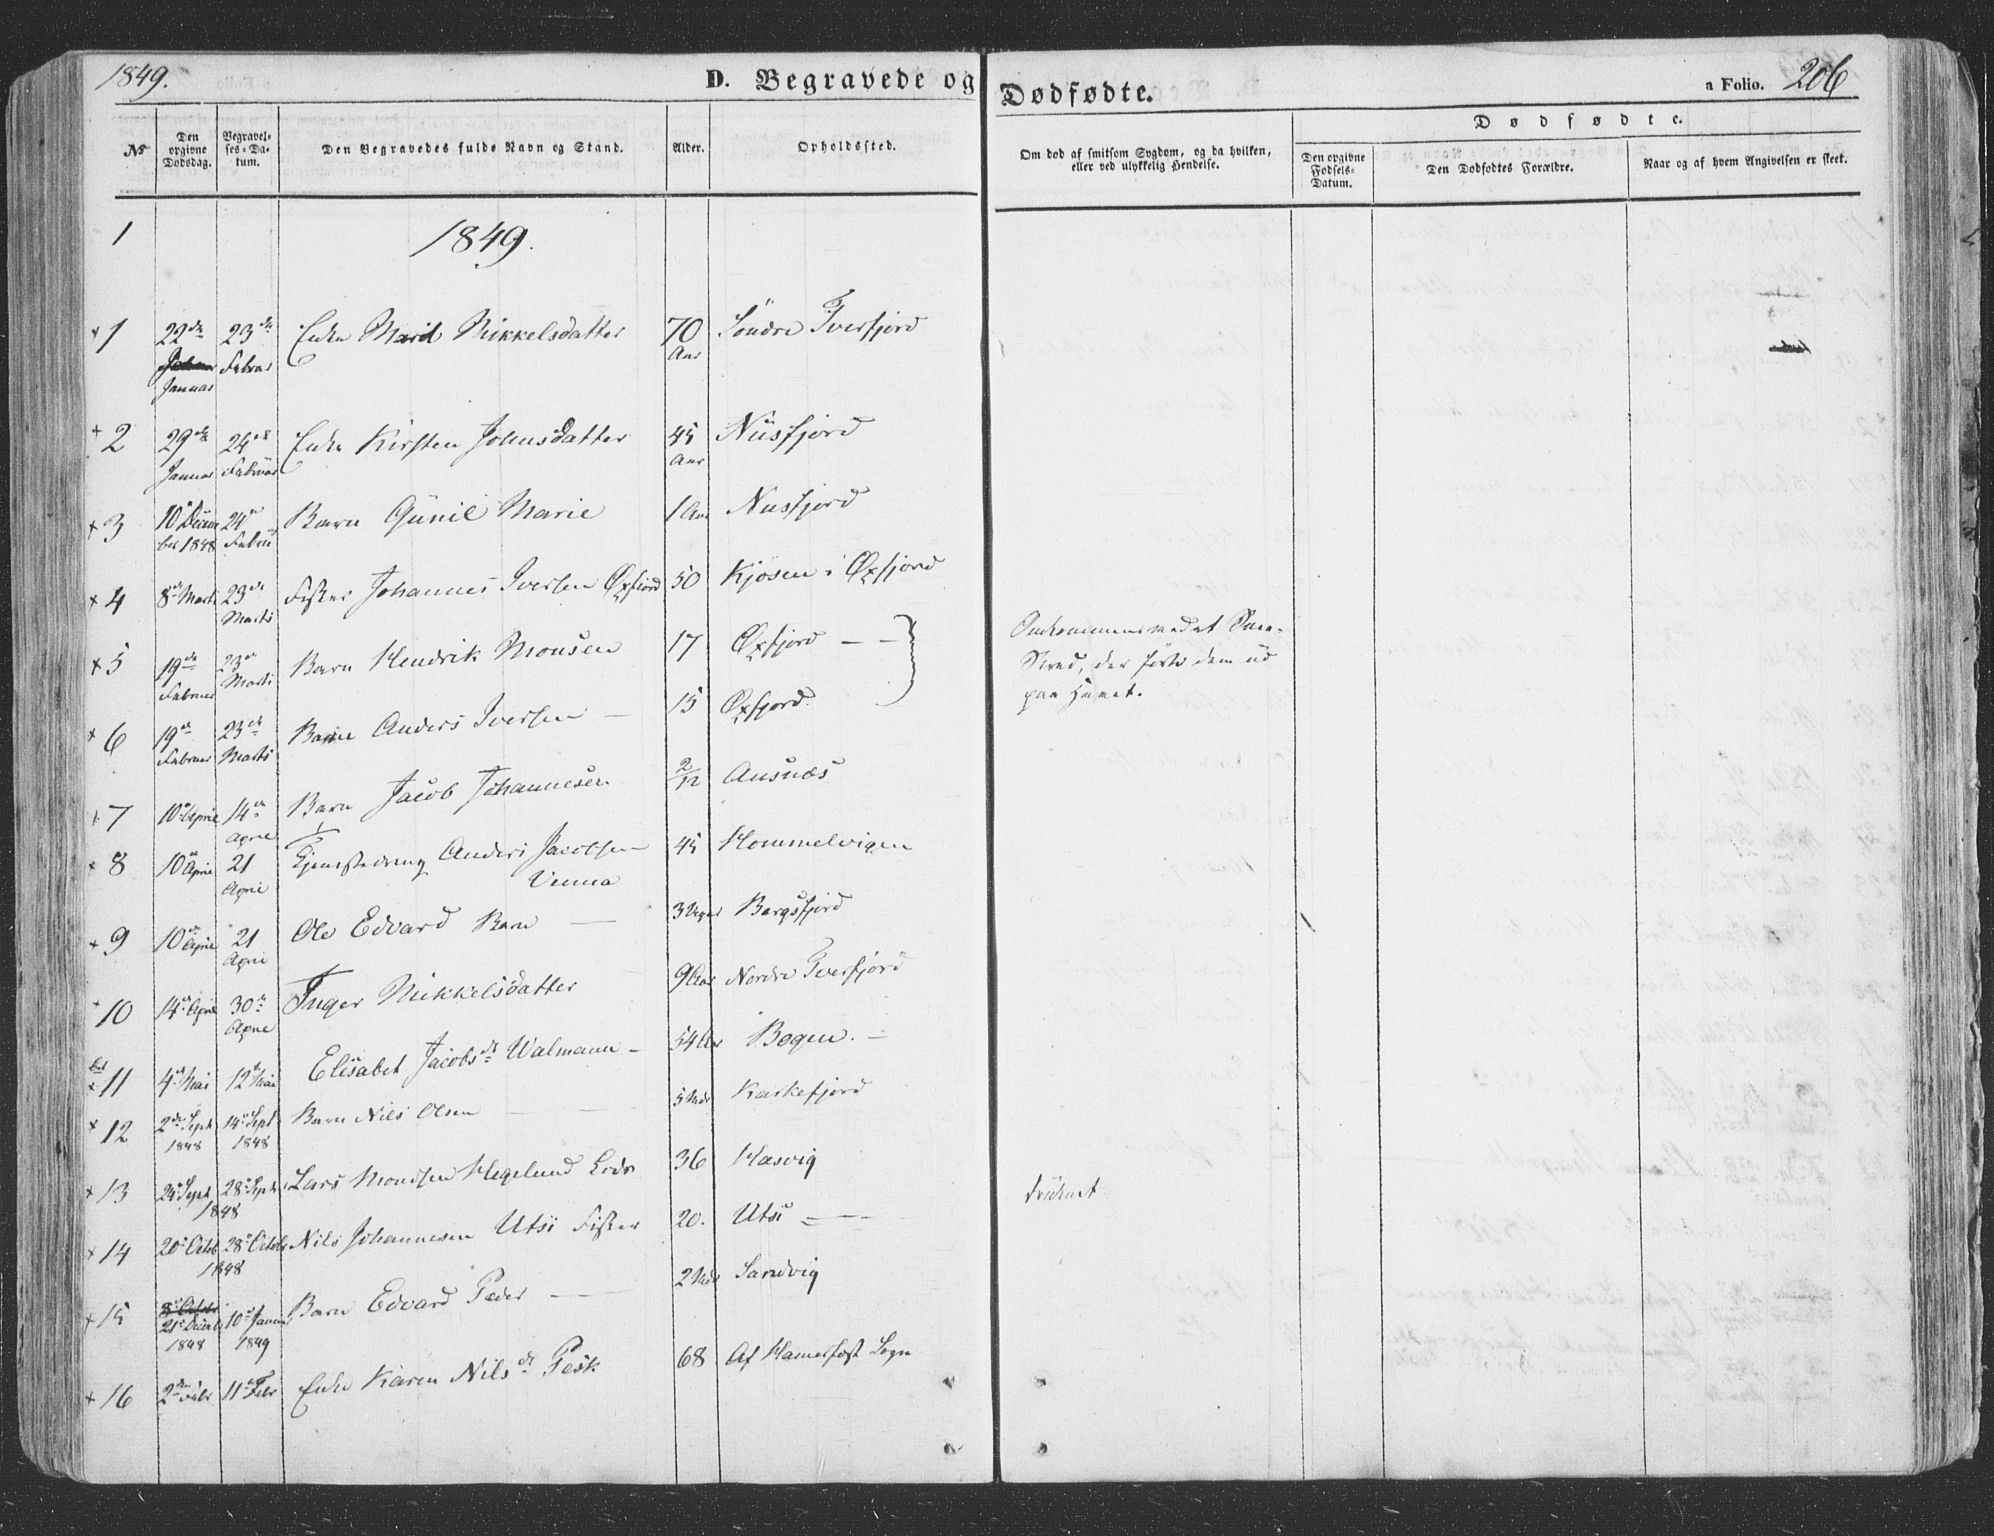 1849.
D. Begravede og Dødfødte.
a Folio. 206
No
Den opgivne Dødsdag.
Begravelses-Datum.
Den Begravedes fulde Navn og Stand.
Alder.
Opholdssted.
Om død af smitsom Sygdom, og da hvilken, eller ved ulykkelig Hendelse.
Dødfødte.
Den opgivne Fødsels-Datum.
Den Dødfødtes Forældre.
Naar og af hvem Angivelsen er skeet.
1
1849.
1 22de Januar 23de Februar Enke Marit Mikkelsdatter 70 Aar Søndre Tverfjord
2 29de Januar 24de Februar Enke Kirsten Johnsdatter 45 Aar Nusfjord
3 10de Decem ber 1848 24de Febru Barn Gunil Marie 1 Aar Nusfjord
4 8de Marts 23de Marts Fisker Johannes Iversen Øxfjord 50 Kjosen i Øxfjord
5 19de Februar 23de Marts Barn Hendrik Monsen 17 Øxfjord
Omkommen ved et Snee-
Skred, der førte dem ud
paa Havet.
6 19de Februar 23de Marts Barn Anders Iversen 15 Øxfjord
7 10de April 14de April Barn Jacob Johannesen 2/12 Ausnæs
8 10de April 21 April Anders Jacobsen 45 Hommelvigen
Venna
9 10de April 21 April Ole Edvard Barn 3 Uger Bergsfjord
10 14de April 30te April Inger Mikkelsdatter 9 Aar Nordre Tverfjord
11 4de Mai 12te Mai Elisabet Jacobsdt Walmann 54 Aar Bogen.
12 2de Sept 1848 14de Sept 1848 Barn Nils Olsen 5 Mdr Karkefjord
13 24de Sept 28de Sept 1848 Lars Monsen Hegelund 36 Hasvig
14 20de Octob 28de Octobr 1848 Nils Johannesen Utsi Fisker 20. Utsi druknet
15 21de Decemb 1848 10de Januar 1849 Barn Edvard Peder 2 Mdr Sandvig
16 2den Febr 11te Febr Enke Karen Nilsdt Pesk 68 Af Hamerfest Sogn